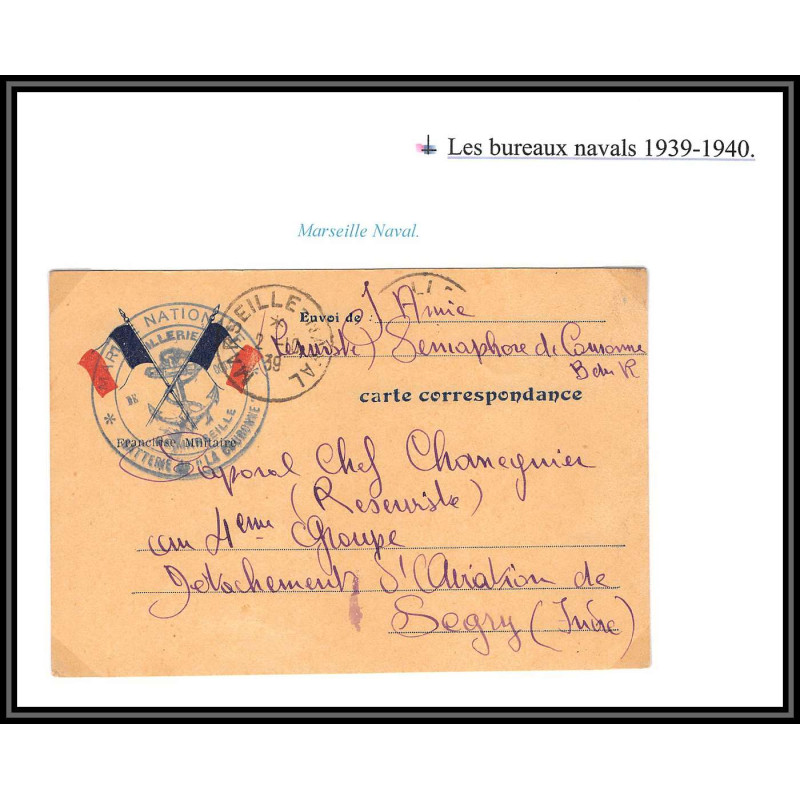 Les bureaux navals 1939-1940.
Marseille Naval.
Envoi de J Amie
Reserviste Semaphore de Couronne
B du R
carte correspondance
MARINE NATIONALE
ARTILLERIE
DE
MARSEILLE
BATTERIE DE "LA COURONNE"
MARSEILLE-NAVAL
2
39
Franchise Militaire
Caporal Chef
(Reserviste)
au 4eme Groupe
Detachement d'Aviation de
Segry (Indre)